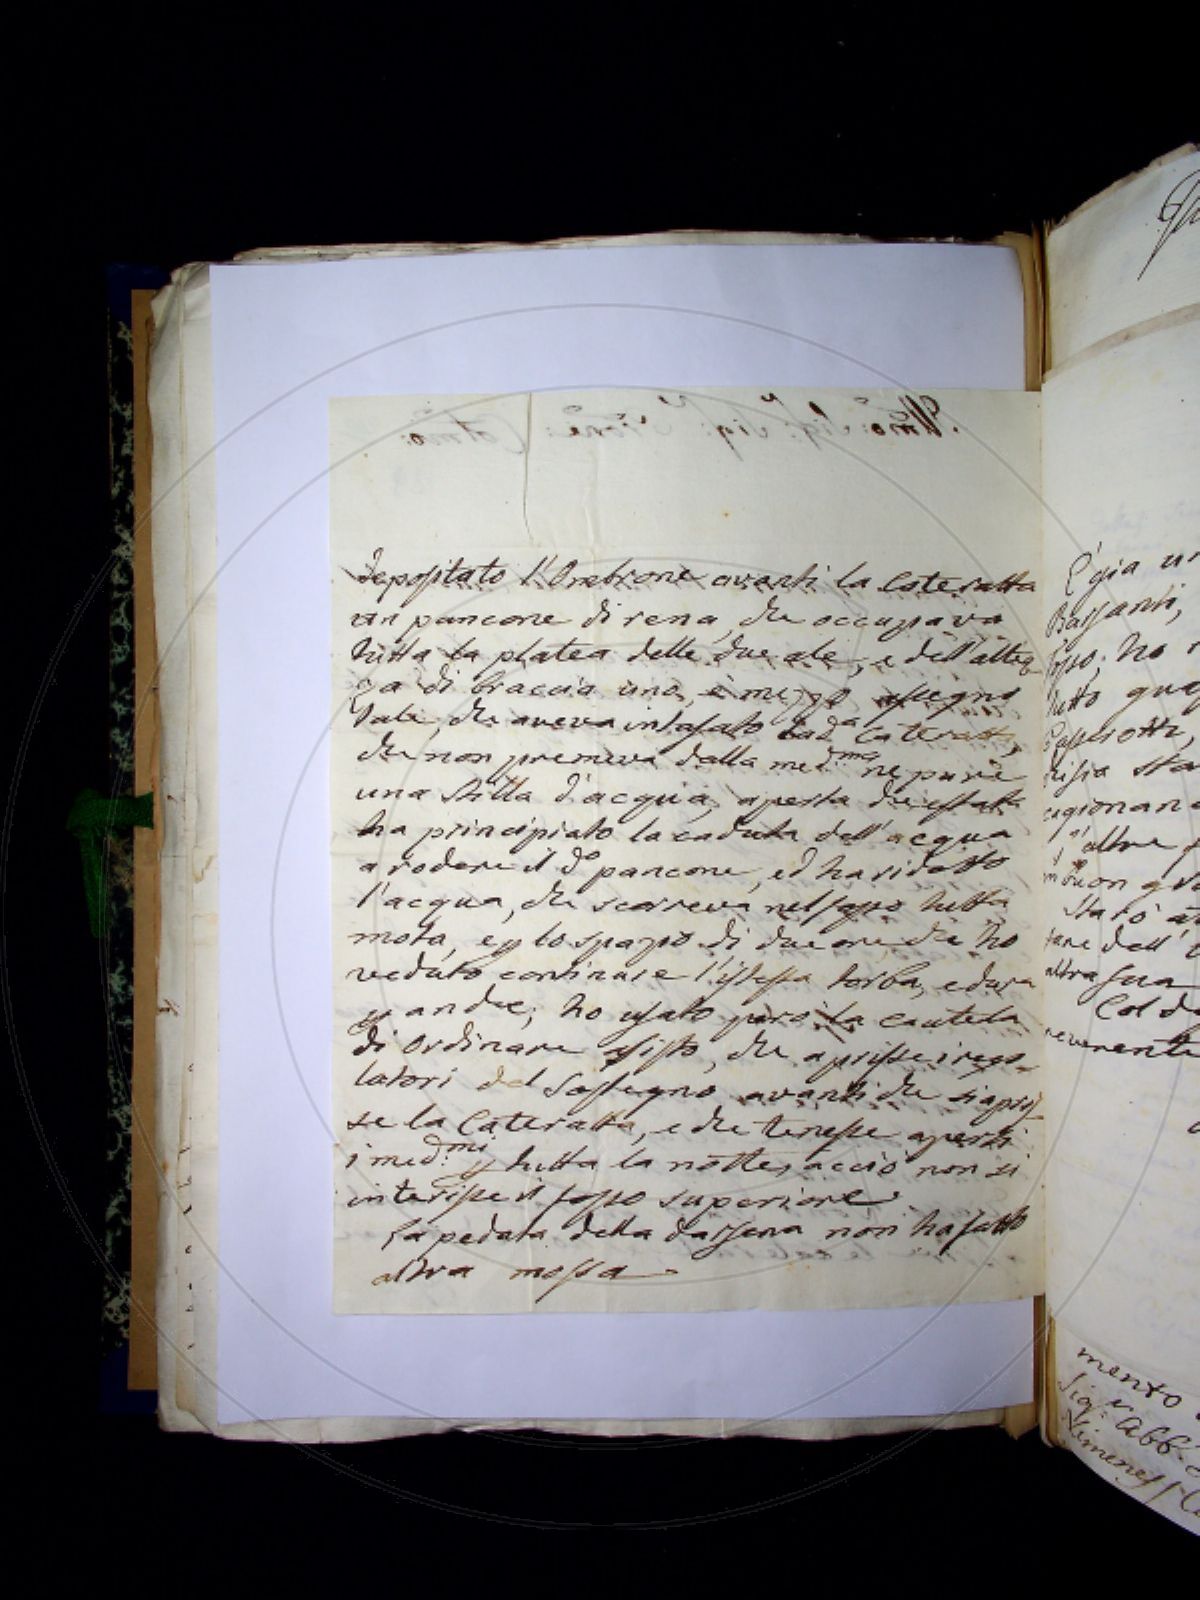 Depositato l'Ombrone avanti la Cateratta
un pancone di rena, che occupava
tutta la platea delle due ale, e dell'altez
za di braccia uno, e mezzo a segno
tale, che aveva intasato la d.a Cateratta,
che non premeva dalla med.ma ne pure
una stilla d'acqua, aperta che è stata
ha principiato la caduta dell'acqua
a rodere il d.o pancone, ed ha ridotto
l'acqua, che scorreva nel fosso tutta
mota, e p lo spazio di due ore che ho
veduto continuare l'istessa torba, e dura
anche, ho usato però la cautela
di ordinare che aprisse i rego-
latori del Sostegno avanti che si apris-
se la Cateratta, e che tenesse aperti
i med.mi p tutta la notte, acciò non si
interisse il fosso superiore
La pedata della darsena non ha fatto
altra mossa
È gia un
Barsanti,
ho
tutto
sta
cagionan
l'altre
Staró
dell'
altra sua
Col
reverente
mento
Sig.r Abb.e
Ximenes